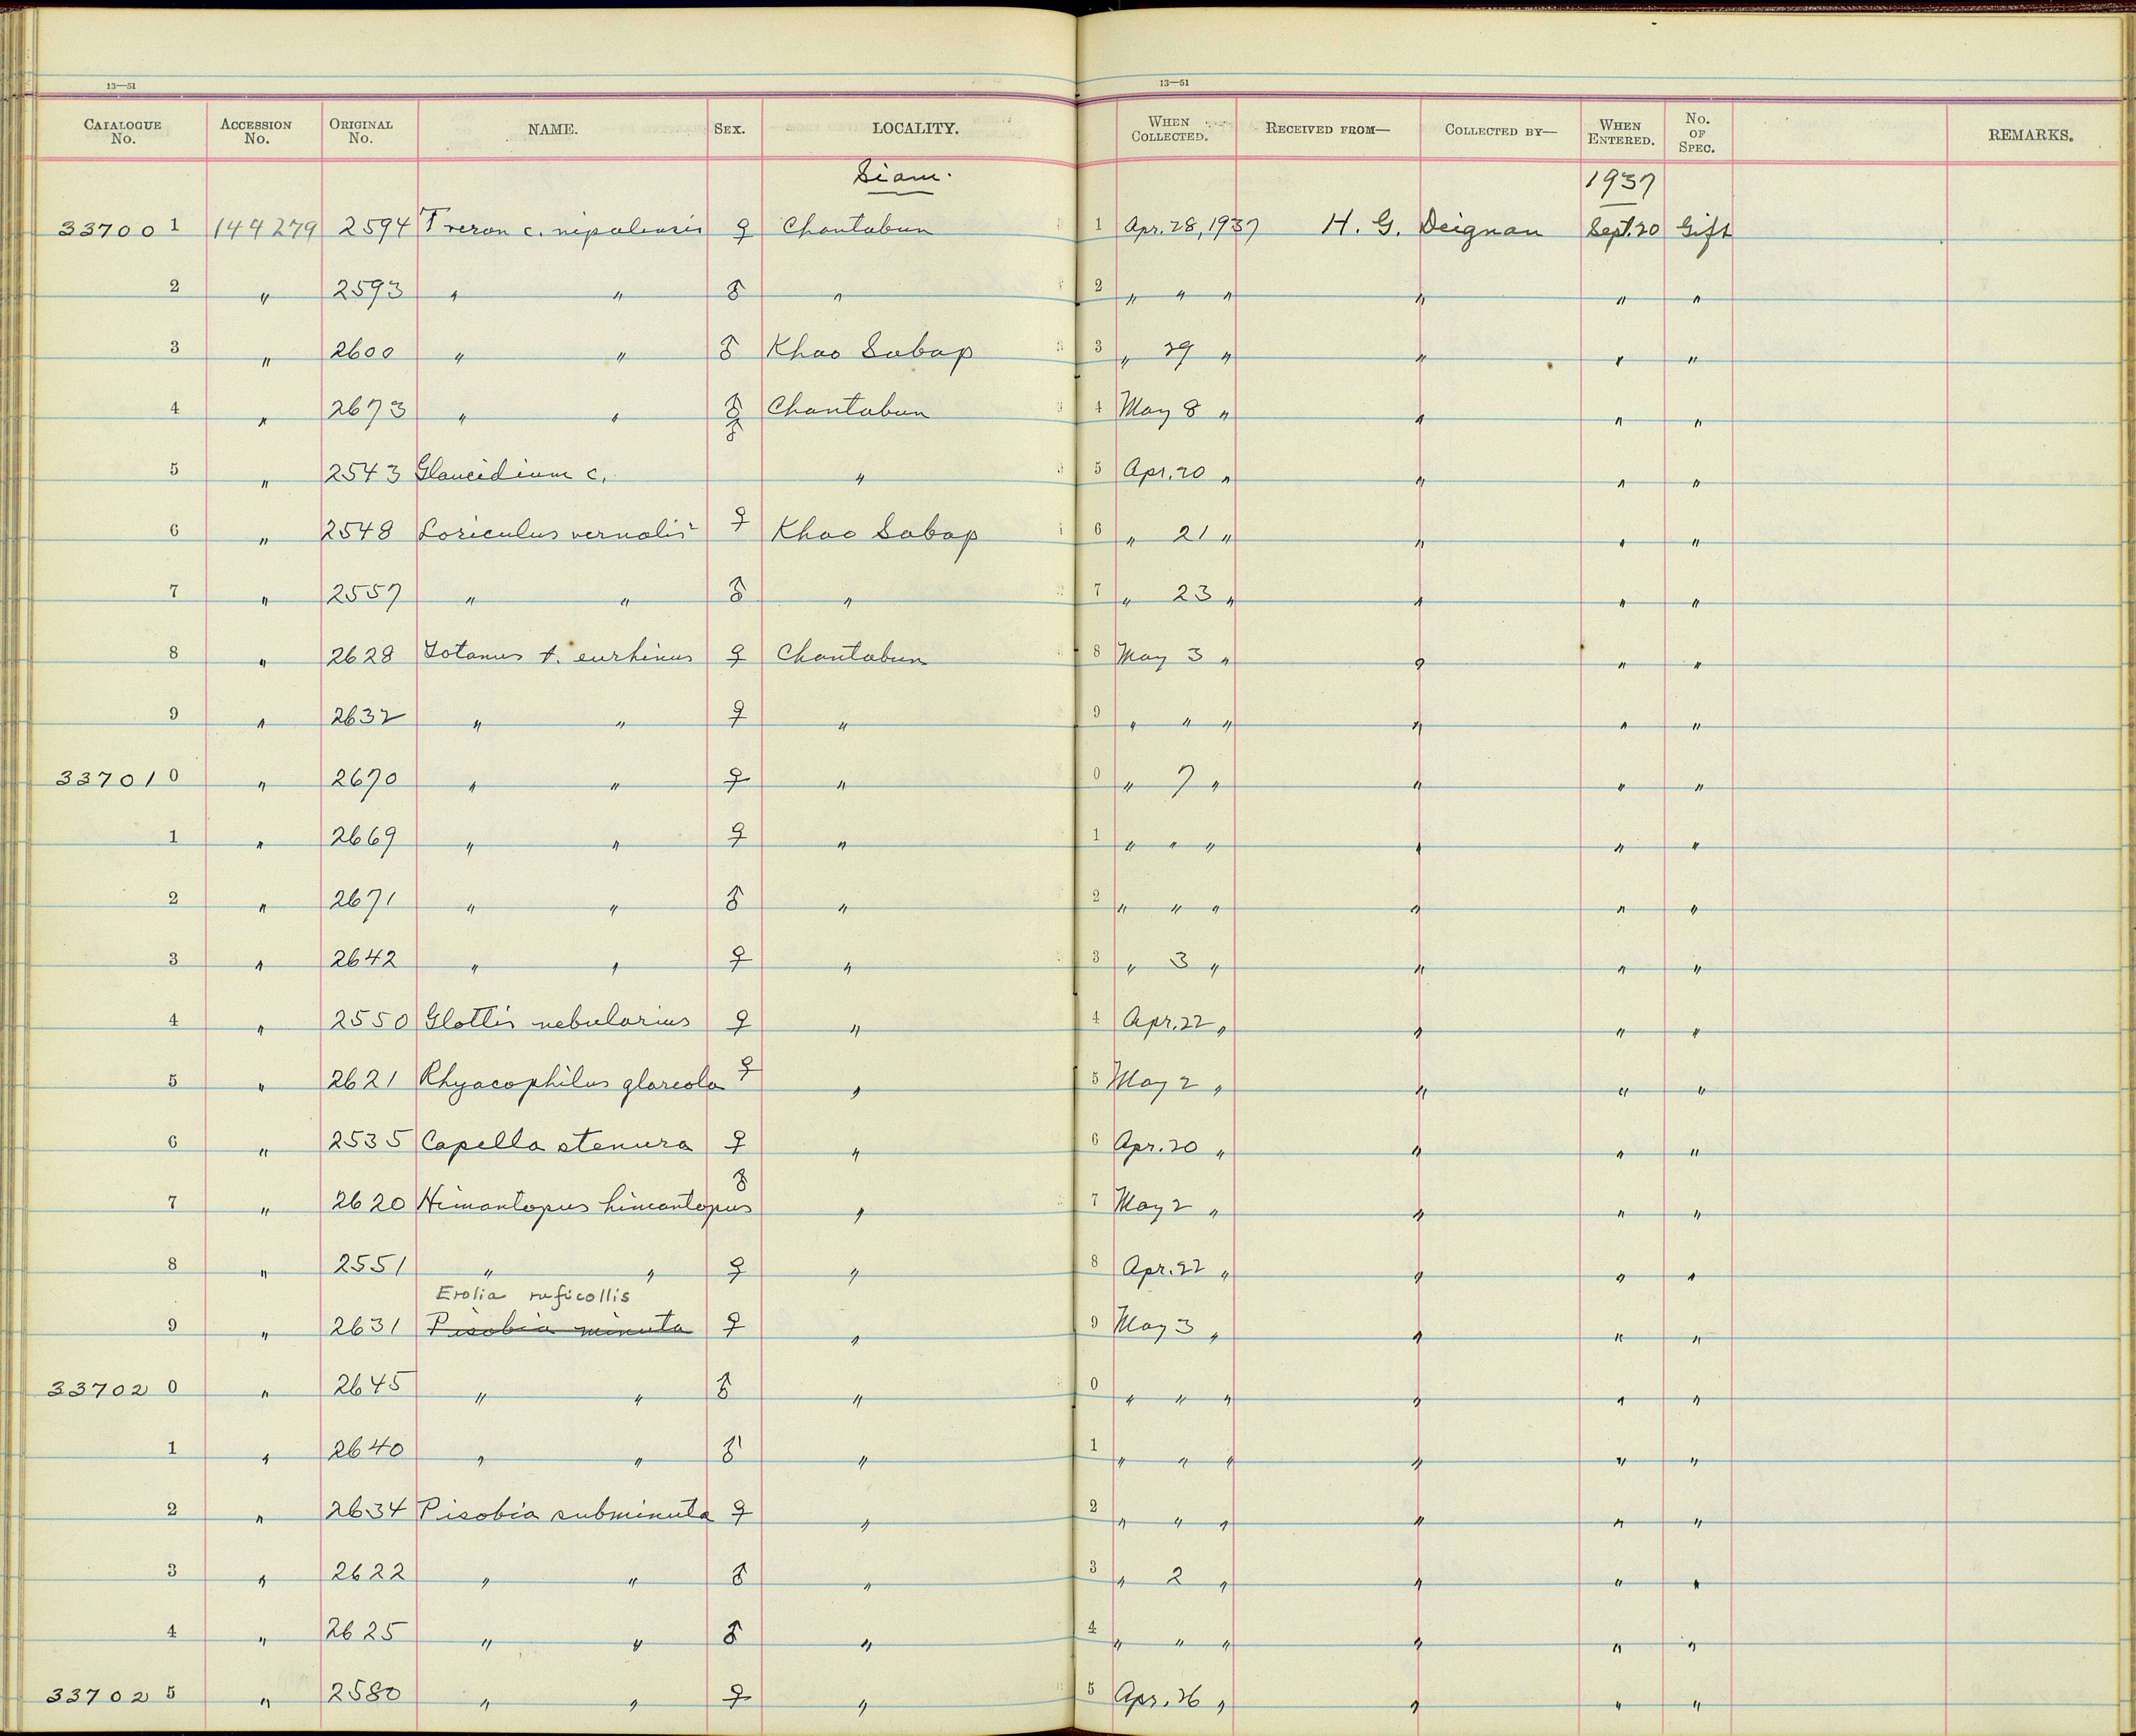 13—51 13—51
CATALOGUE No. ACCESSION No. ORIGINAL No. NAME. SEX. LOCALITY. WHEN COLLECTED. RECEIVED FROM— COLLECTED BY— WHEN ENTERED. No. OF SPEC. REMARKS.
Siam. 1937
337001 144279 2594 Treron c. nipalensis ♀ Chantabun 1 Apr. 28, 1937 H. G. Deignan Sept. 20 Gift
2 " 2593 " " ♂ " 2 " " " " " "
3 " 2600 " " ♂ Khao Sabap 3 " 29 " " " "
4 " 2673 " " Chantabun 4 May 8 " " " "
5 " 2543 Glaucidium c. " 5 Apr. 20 " " " "
6 " 2548 Loriculus vernalis ♀ Khao Sabap 6 " 21 " " " "
7 " 2557 " " ♂ " 7 " 23 " " " "
8 " 2628 Totanus t. eurhinus ♀ Chantabun 8 May 3 " " " "
9 " 2632 " " ♀ " 9 " " " " " "
337010 " 2670 " " ♀ " 0 " 7 " " " "
1 " 2669 " " ♀ " 1 " " " " " "
2 " 2671 " " ♂ " 2 " " " " " "
3 " 2642 " " ♀ " 3 " 3 " " " "
4 " 2550 Glottis nebularius ♀ " 4 Apr. 22 " " " "
5 " 2621 Rhyacophilus glareola ♀ " 5 May 2 " " " "
6 " 2535 Capella stenura ♀ " 6 Apr. 20 " " " "
7 " 2620 Himantopus himantopus ♂ " 7 May 2 " " " "
8 " 2551 " " ♀ " 8 Apr. 22 " " " "
Erolia ruficollis
9 " 2631 Pisobia minuta ♀ " 9 May 3 " " " "
337020 " 2645 " " ♂ " 0 " " " " " "
1 " 2640 " " ♂ " 1 " " " " " "
2 " 2634 Pisobia subminuta ♀ " 2 " " " " " "
3 " 2622 " " ♂ " 3 " 2 " " " "
4 " 2625 " " ♂ " 4 " " " " " "
337025 " 2580 " " ♀ " 5 Apr. 26 " " " "